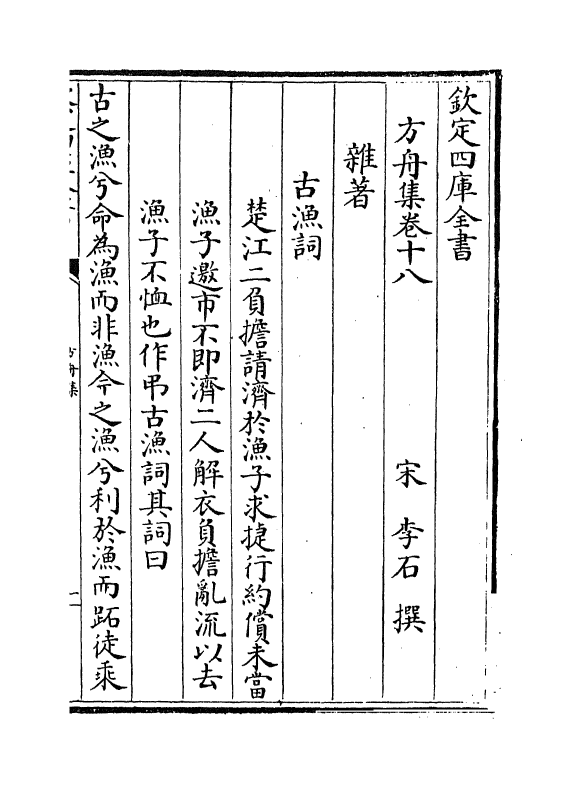 欽定四庫全書
方舟集卷十八　宋　李石　撰
雜著
古漁詞
楚江二負擔請濟於漁子求捷行約償未當
漁子邀市不即濟二人解衣負擔亂流以去
漁子不恤也作弔古漁詞其詞曰
古之漁兮命為漁而非漁今之漁兮利於漁而跖徒乘
方舟集
一